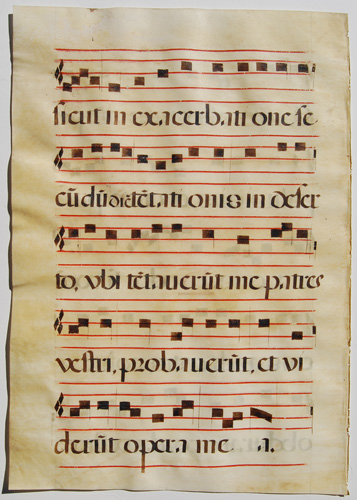 sicut in exacerbati one se
cũ dũ diẽ tẽtati onis in deser
to, vbi tẽtauerũt me patres
vestri, probauerũt, et vi
derũt opera me a.